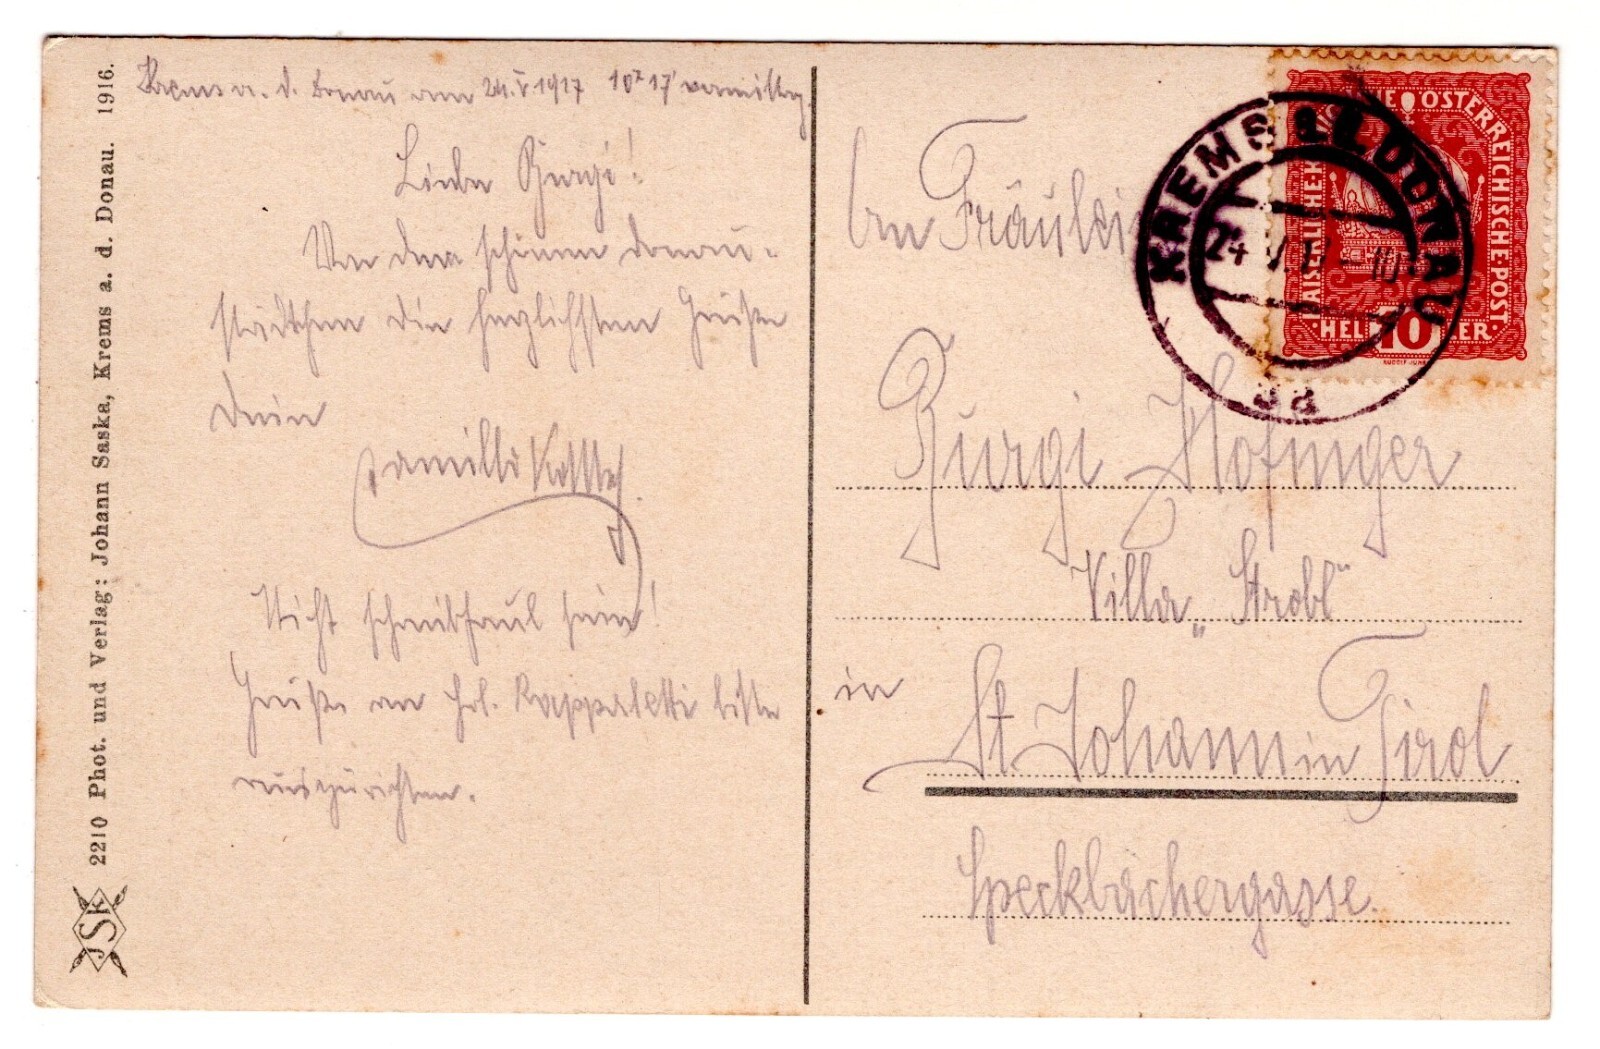 2210 Phot. und Verlag: Johann Saska, Krems a. d. Donau. 1916.
JSK
Krems a. d. Donau am 24.V.1917 10h17' vormittag.
Liebe Burgi!
Von dem schönen Donau-
städtchen die herzlichsten Grüße
Dein
Nicht schreibfaul sein!
Grüße an Frl. Kappaletti bitte
auszurichten.
An Fräulein
Burgi Hofinger
Villa „Strobl"
in St Johann in Tirol
Speckbachergasse.
KAISERLICHE KÖNIGLICHE ÖSTERREICHISCHE POST
HELLER 10 HELLER
KREMS A. D. DONAU
24 V 17